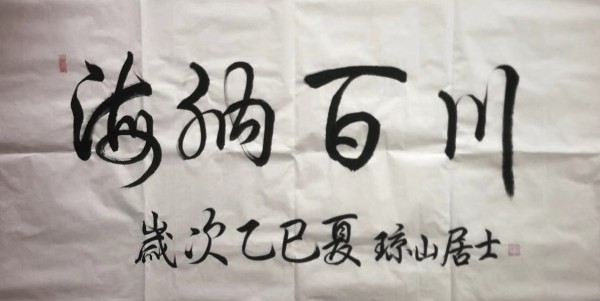 海纳百川
歲次乙巳夏 琼山居士